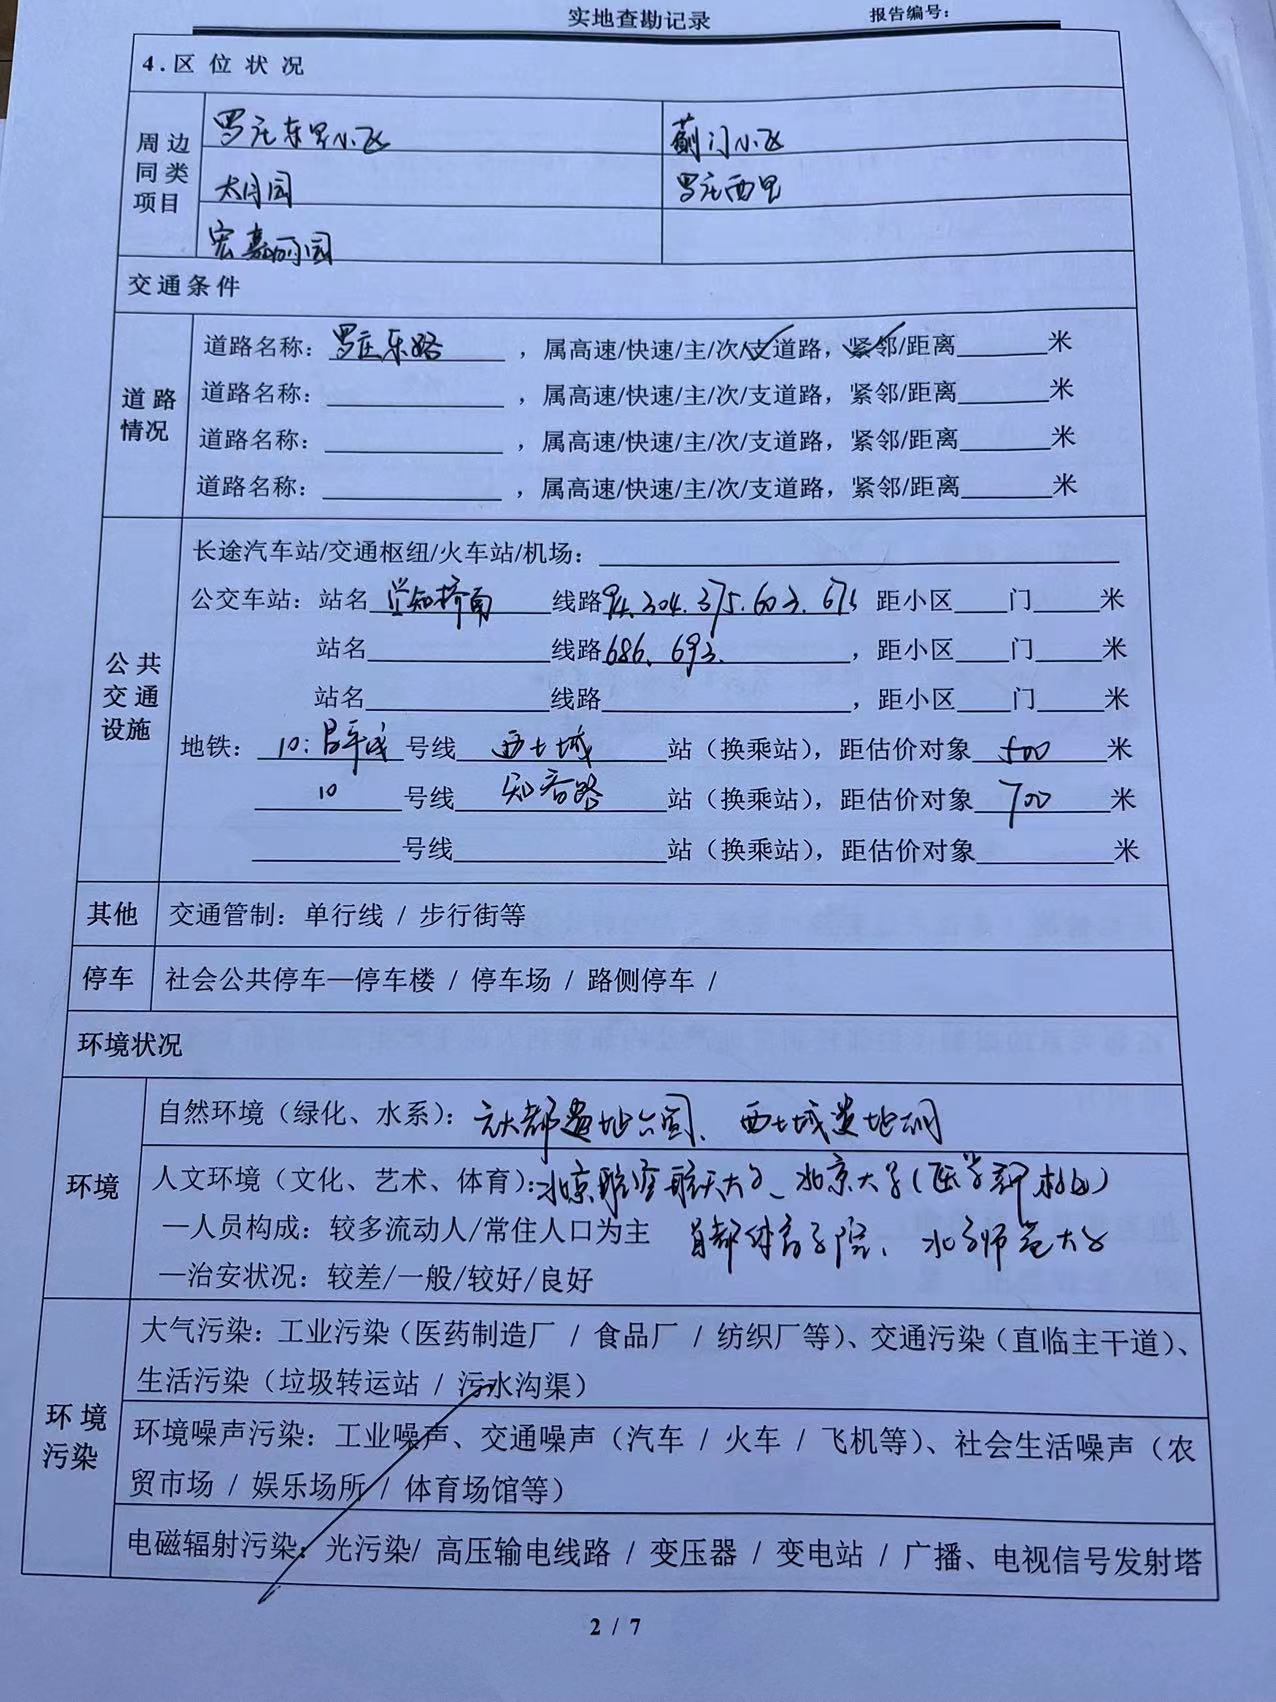 实地查勘记录 报告编号：
4.区位状况
周边同类项目
罗庄东里小区 蓟门小区
太月园 罗庄西里
宏嘉丽园
交通条件
道路情况
道路名称：罗庄东路，属高速/快速/主/次/支道路，紧邻/距离______米
道路名称：______，属高速/快速/主/次/支道路，紧邻/距离______米
道路名称：______，属高速/快速/主/次/支道路，紧邻/距离______米
道路名称：______，属高速/快速/主/次/支道路，紧邻/距离______米
公共交通设施
长途汽车站/交通枢纽/火车站/机场：______
公交车站：站名 学知桥南 线路94.304.375.603.675 距小区____门____米
站名______线路686、693、，距小区____门____米
站名______线路______，距小区____门____米
地铁：10；昌平线 号线 西土城 站（换乘站），距估价对象 500 米
10 号线 知春路 站（换乘站），距估价对象 700 米
______号线______站（换乘站），距估价对象______米
其他 交通管制：单行线 / 步行街等
停车 社会公共停车—停车楼 / 停车场 / 路侧停车 /
环境状况
环境
自然环境（绿化、水系）：元大都遗址公园、西土城遗址
人文环境（文化、艺术、体育）：北京航空航天大学、北京大学（医学部
—人员构成：较多流动人/常住人口为主 首都体育学院、北京师范大学
—治安状况：较差/一般/较好/良好
环境污染
大气污染：工业污染（医药制造厂 / 食品厂 / 纺织厂等）、交通污染（直临主干道）、
生活污染（垃圾转运站 / 污水沟渠）
环境噪声污染：工业噪声、交通噪声（汽车 / 火车 / 飞机等）、社会生活噪声（农
贸市场 / 娱乐场所 / 体育场馆等）
电磁辐射污染：光污染/ 高压输电线路 / 变压器 / 变电站 / 广播、电视信号发射塔
2 / 7